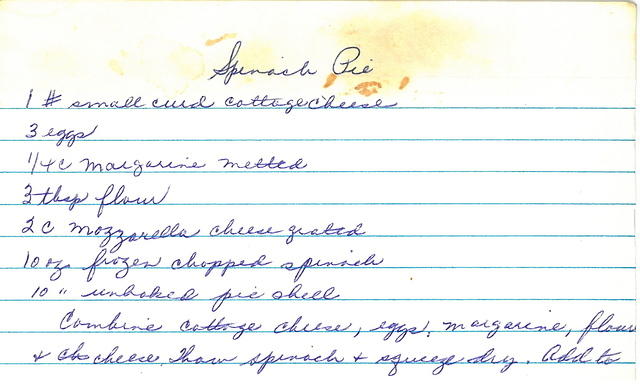 Spinach Pie
1 # small curd cottage cheese
3 eggs
1/4 c margarine melted
3 tbsp flour
2 c mozzarella cheese grated
10 oz frozen chopped spinach
10 " unbaked pie shell
Combine cottage cheese, eggs, margarine, flour
+ cheese. Thaw spinach + squeeze dry. Add to